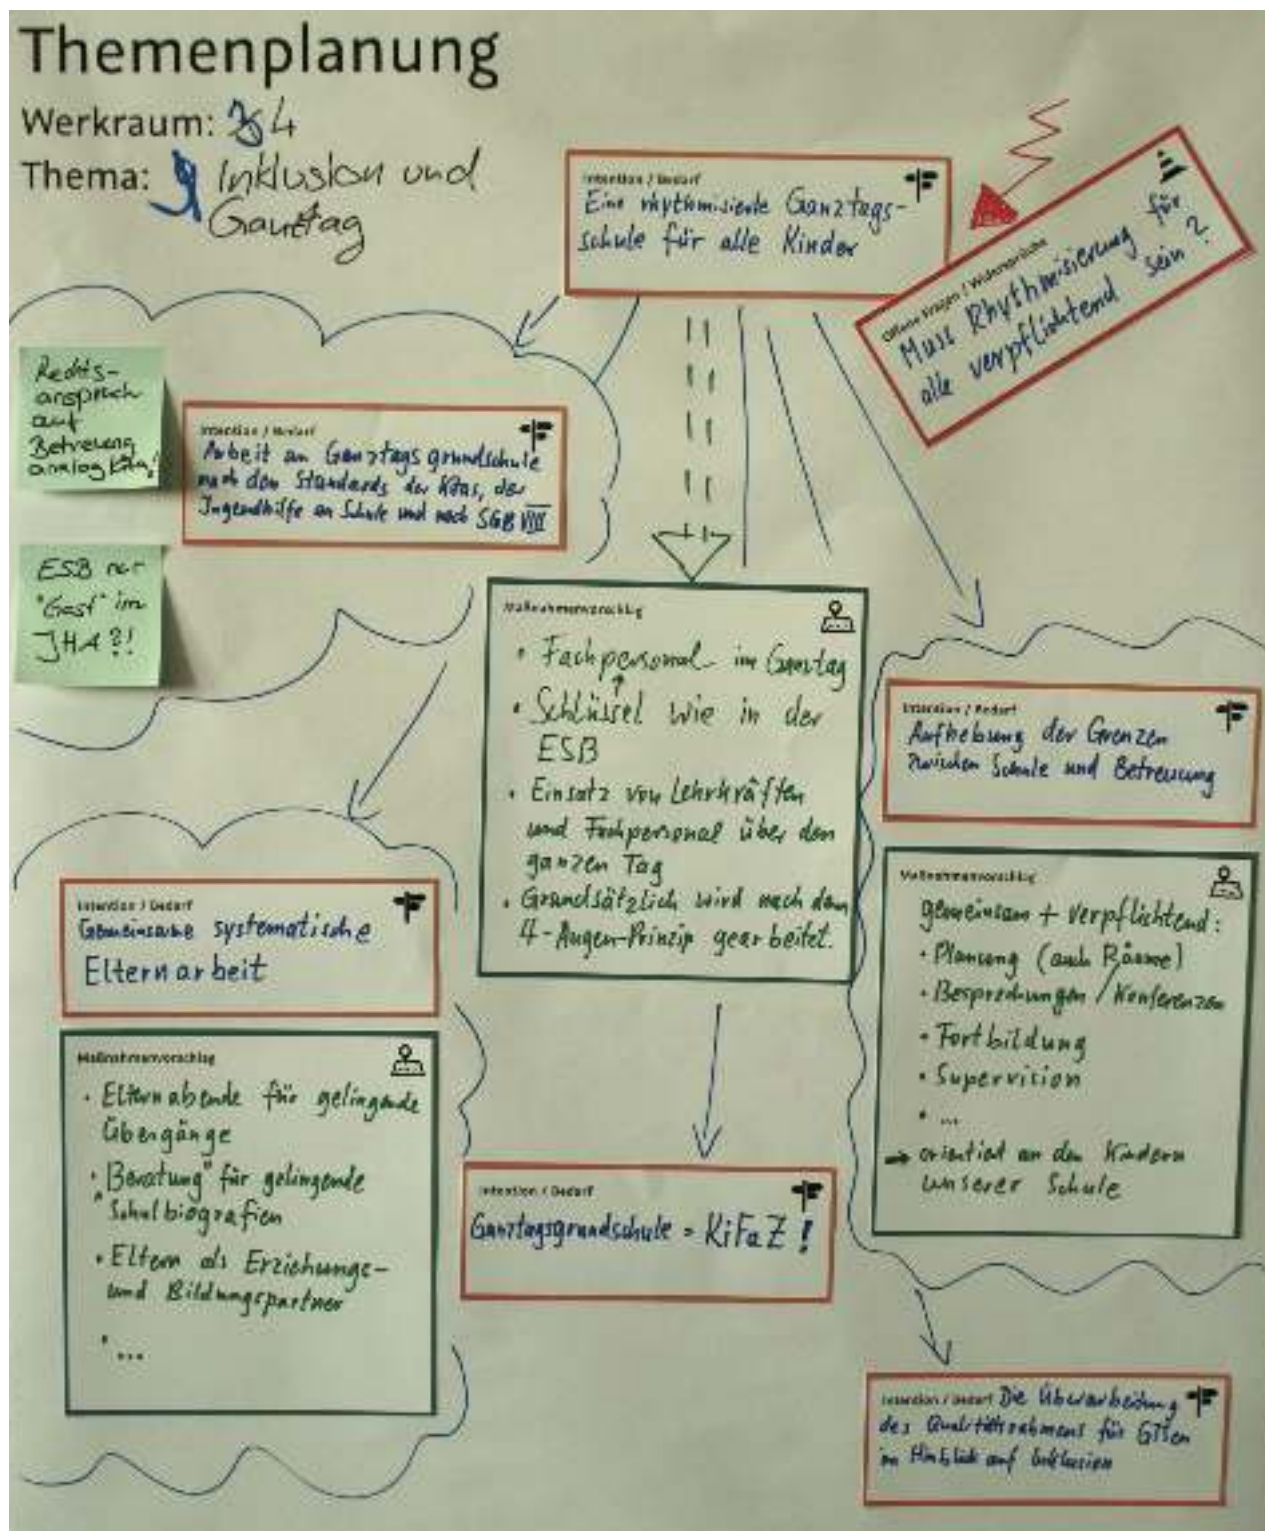 Themenplanung
Werkraum: 4
Thema: Inklusion und
Ganztag
Intention / Bedarf
Eine rhythmisierte Ganztags-
schule für alle Kinder
Offene Fragen / Widersprüche
Muss Rhythmisierung für
alle verpflichtend sein?
Rechts-
anspruch
auf
Betreuung
analog Kita!
Intention / Bedarf
Arbeit an Ganztagsgrundschule
nach den Standards der Kitas, der
Jugendhilfe an Schule und nach SGB VIII
ESB nur
"Gast" im
JHA?!
Maßnahmenvorschlag
• Fachpersonal im Ganztag
• Schlüssel wie in der
ESB
• Einsatz von Lehrkräften
und Fachpersonal über den
ganzen Tag
• Grundsätzlich wird nach dem
4-Augen-Prinzip gearbeitet.
Intention / Bedarf
Aufhebung der Grenzen
zwischen Schule und Betreuung
Maßnahmenvorschlag
gemeinsam + verpflichtend:
• Planung (auch Räume)
• Besprechungen / Konferenzen
• Fortbildung
• Supervision
• ...
→ orientiert an den Kindern
unserer Schule
Intention / Bedarf
Gemeinsame systematische
Elternarbeit
Maßnahmenvorschlag
• Elternabende für gelingende
Übergänge
• "Beratung" für gelingende
Schulbiografien
• Eltern als Erziehungs-
und Bildungspartner
• ...
Intention / Bedarf
Ganztagsgrundschule = KiFaZ!
Intention / Bedarf Die Überarbeitung
des Qualitätsrahmens für GTSen
im Hinblick auf Inklusion